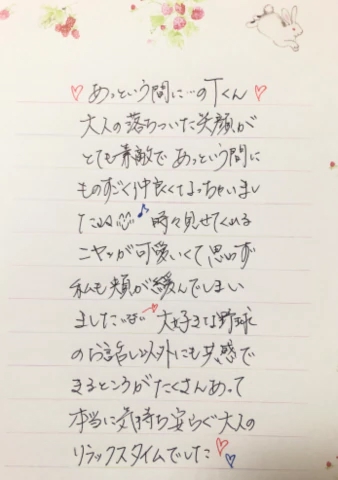 ♡ あっという間に…のTくん ♡
大人の落ちついた笑顔が
とても素敵で あっという間に
ものすごく仲良くなっちゃいまし
たね♪ 時々見せてくれる
ニヤッが可愛いくて思わず
私も頬が緩んでしまい
ました 大好きな野球
のお話し以外にも共感で
きるところがたくさんあって
本当に気持ち安らぐ大人の
リラックスタイムでした♡♡